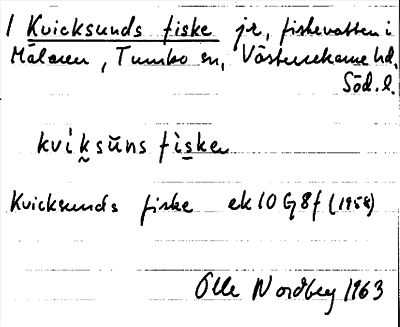 1 Kvicksunds fiske jr, fiskevatten i
Mälaren, Tumbo sn, Västerrekarne hd,
Söd. l.
kviksŭns fiske
Kvicksunds fiske ek 10 G 8 f (1958)
Olle Nordberg 1963